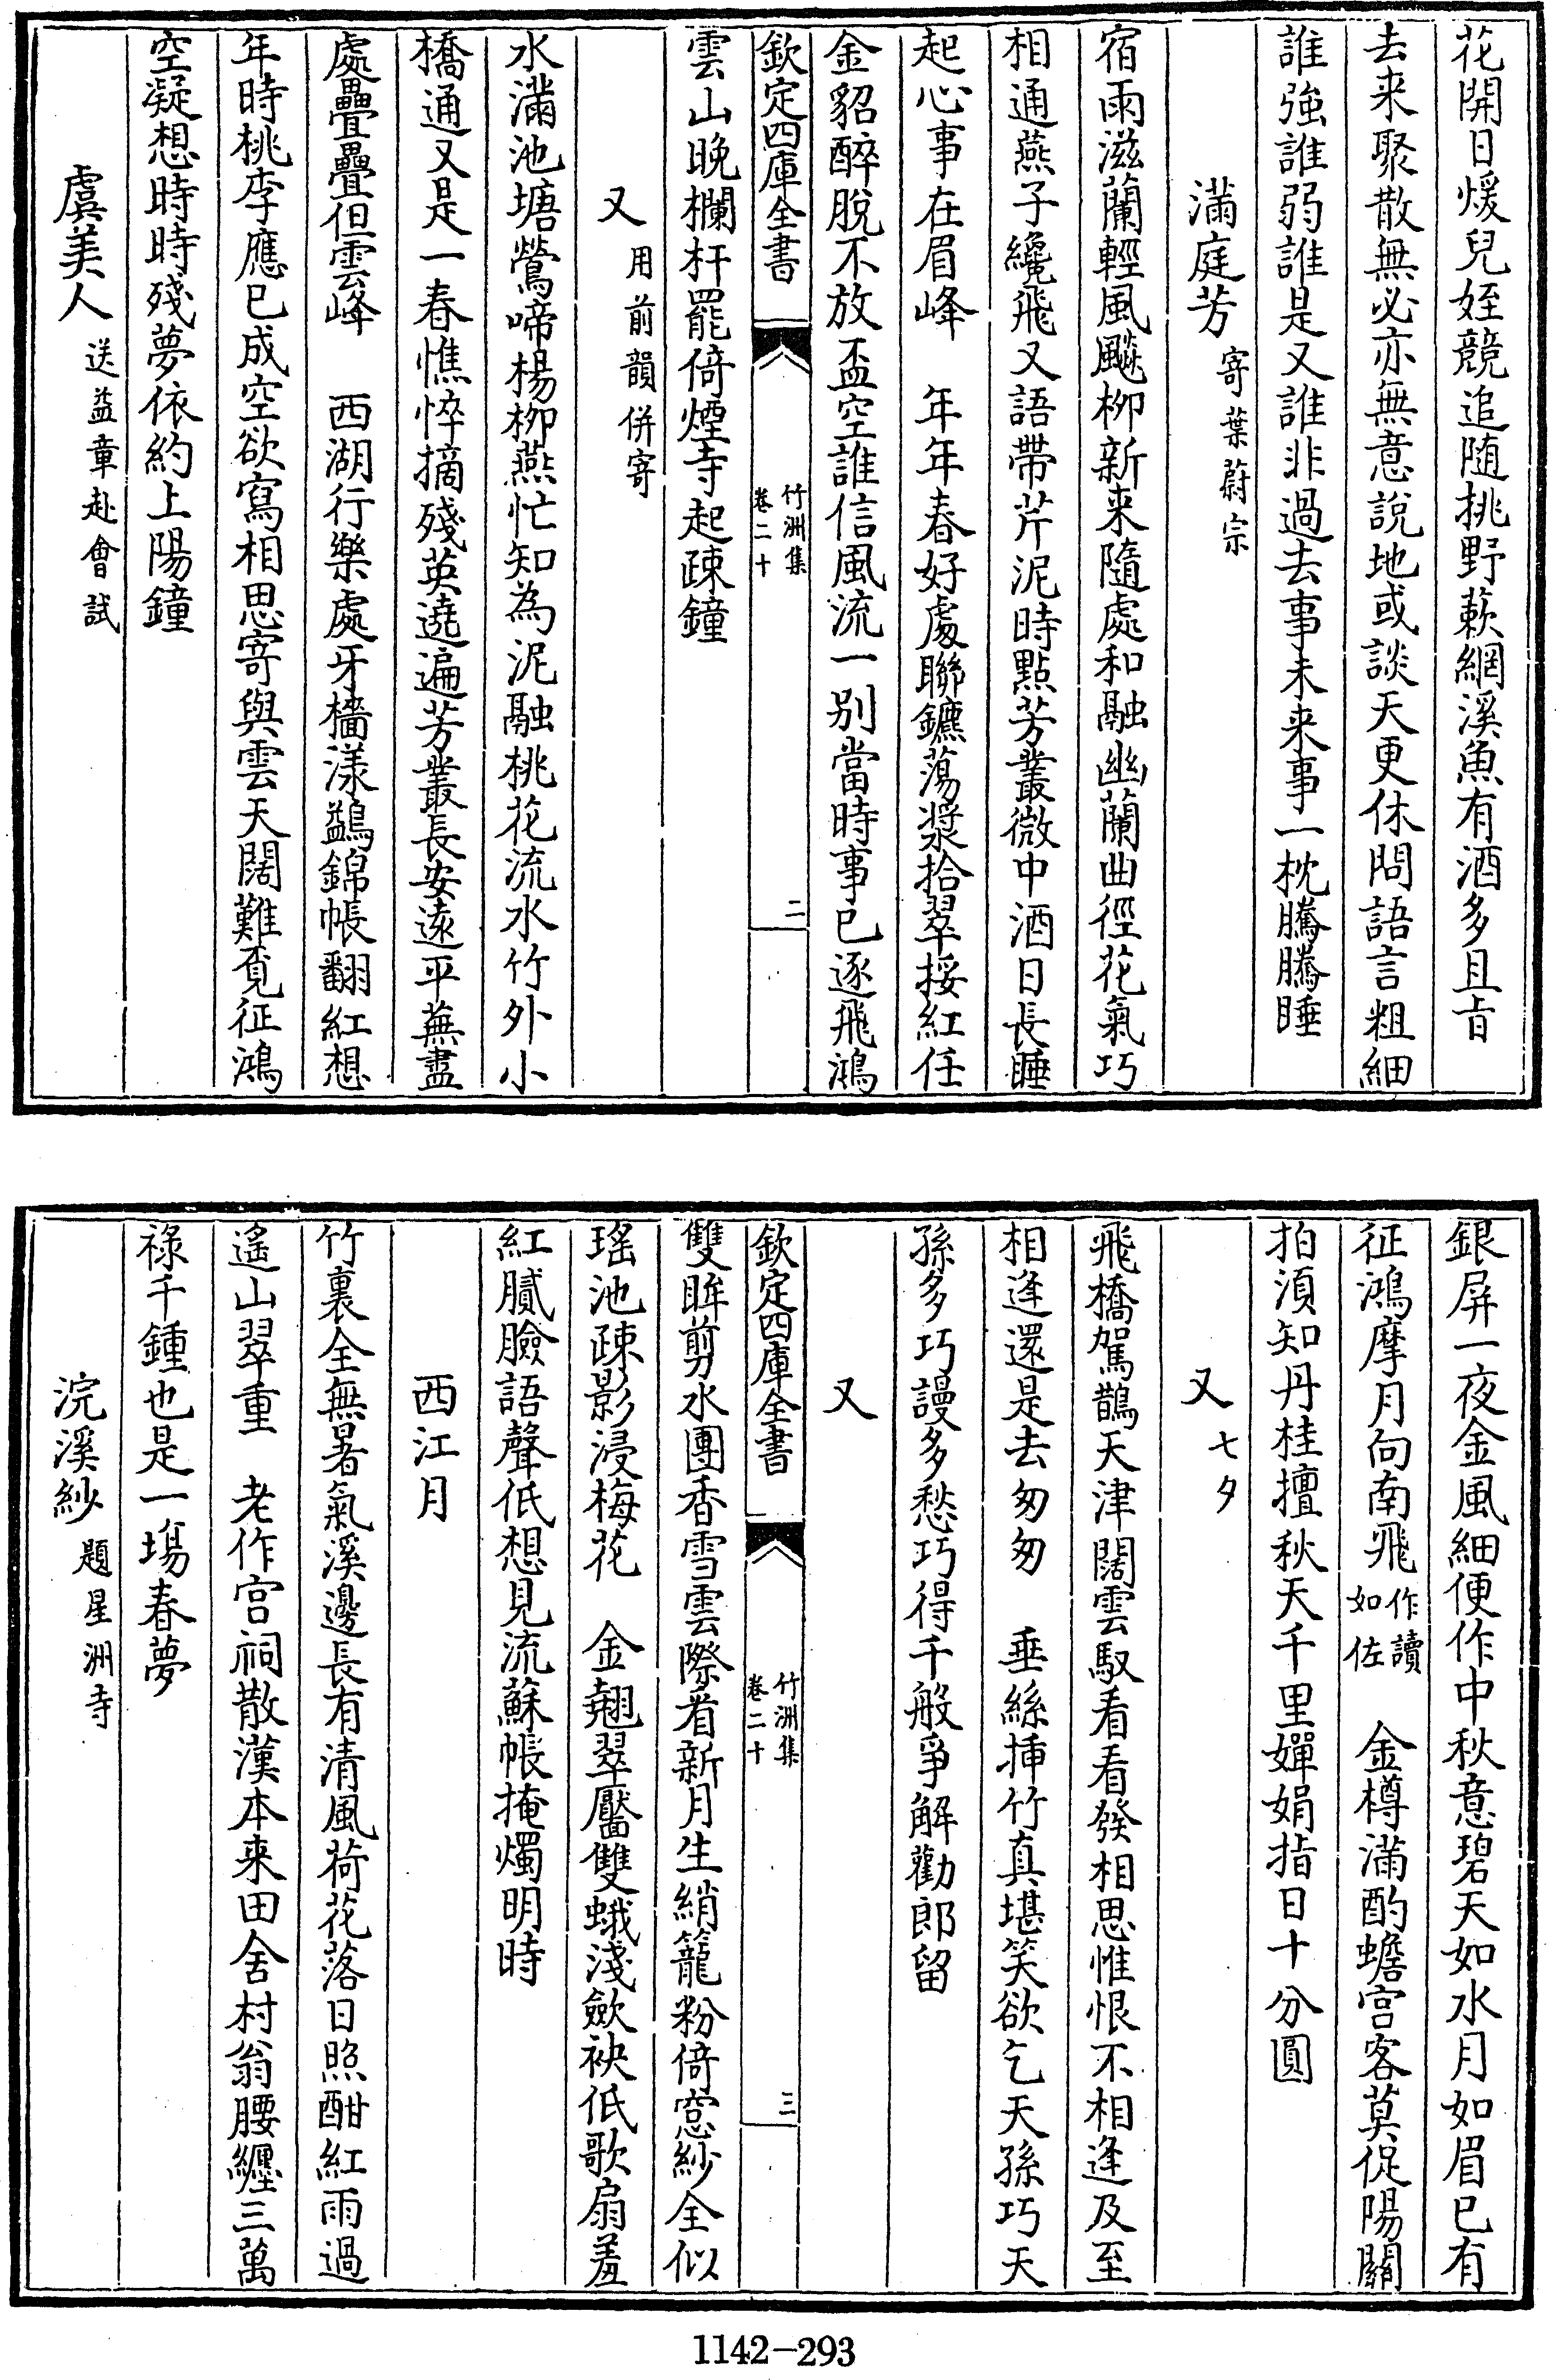 花開日煖兒姪競追随挑野蔌網溪魚有酒多且旨
去来聚散無必亦無意說地或談天更休問語言粗細
誰強誰弱誰是又誰非過去事未来事一枕騰騰睡
滿庭芳 寄葉蔚宗
宿雨滋蘭輕風颭柳新来隨處和融幽蘭曲徑花氣巧
相通燕子纔飛又語帶芹泥時點芳叢微中酒日長睡
起心事在眉峰 年年春好處聯鑣蕩槳拾翠挼紅任
金貂醉脫不放盃空誰信風流一别當時事已逐飛鴻
欽定四庫全書
竹洲集
卷二十
二
雲山晚欄杆罷倚煙寺起疎鐘
又 用前韻併寄
水滿池塘鶯啼楊柳燕忙知為泥融桃花流水竹外小
橋通又是一春憔悴摘殘英遶遍芳叢長安遠平蕪盡
處疊疊但雲峰 西湖行樂處牙檣漾鷁錦帳翻紅想
年時桃李應已成空欲寫相思寄與雲天闊難覔征鴻
空凝想時時殘夢依約上陽鐘
虞美人 送益章赴會試
銀屏一夜金風細便作中秋意碧天如水月如眉已有
征鴻摩月向南飛 作讀如佐 金樽滿酌蟾宫客莫促陽關
拍湏知丹桂擅秋天千里嬋娟指日十分圓
又 七夕
飛橋駕鵲天津闊雲馭看看發相思惟恨不相逢及至
相逢還是去匆匆 垂絲插竹真堪笑欲乞天孫巧天
孫多巧謾多愁巧得千般爭解勸郎留
又
欽定四庫全書
竹洲集
卷二十
三
雙眸剪水團香雪雲際看新月生綃籠粉倚窓紗全似
瑤池疎影浸梅花 金翹翠靨雙蛾淺歛袂低歌扇羞
紅膩臉語聲低想見流蘇帳掩燭明時
西江月
竹裏全無暑氣溪邊長有清風荷花落日照酣紅雨過
遙山翠重 老作宫祠散漢本来田舍村翁腰纏三萬
祿千鍾也是一場春夢
浣溪紗 題星洲寺
1142-293